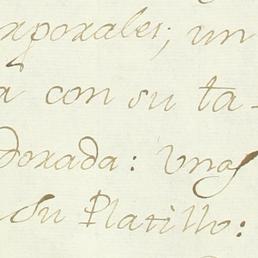 orporales; un
a con su ta-
dorada: Unas
su Platillo: